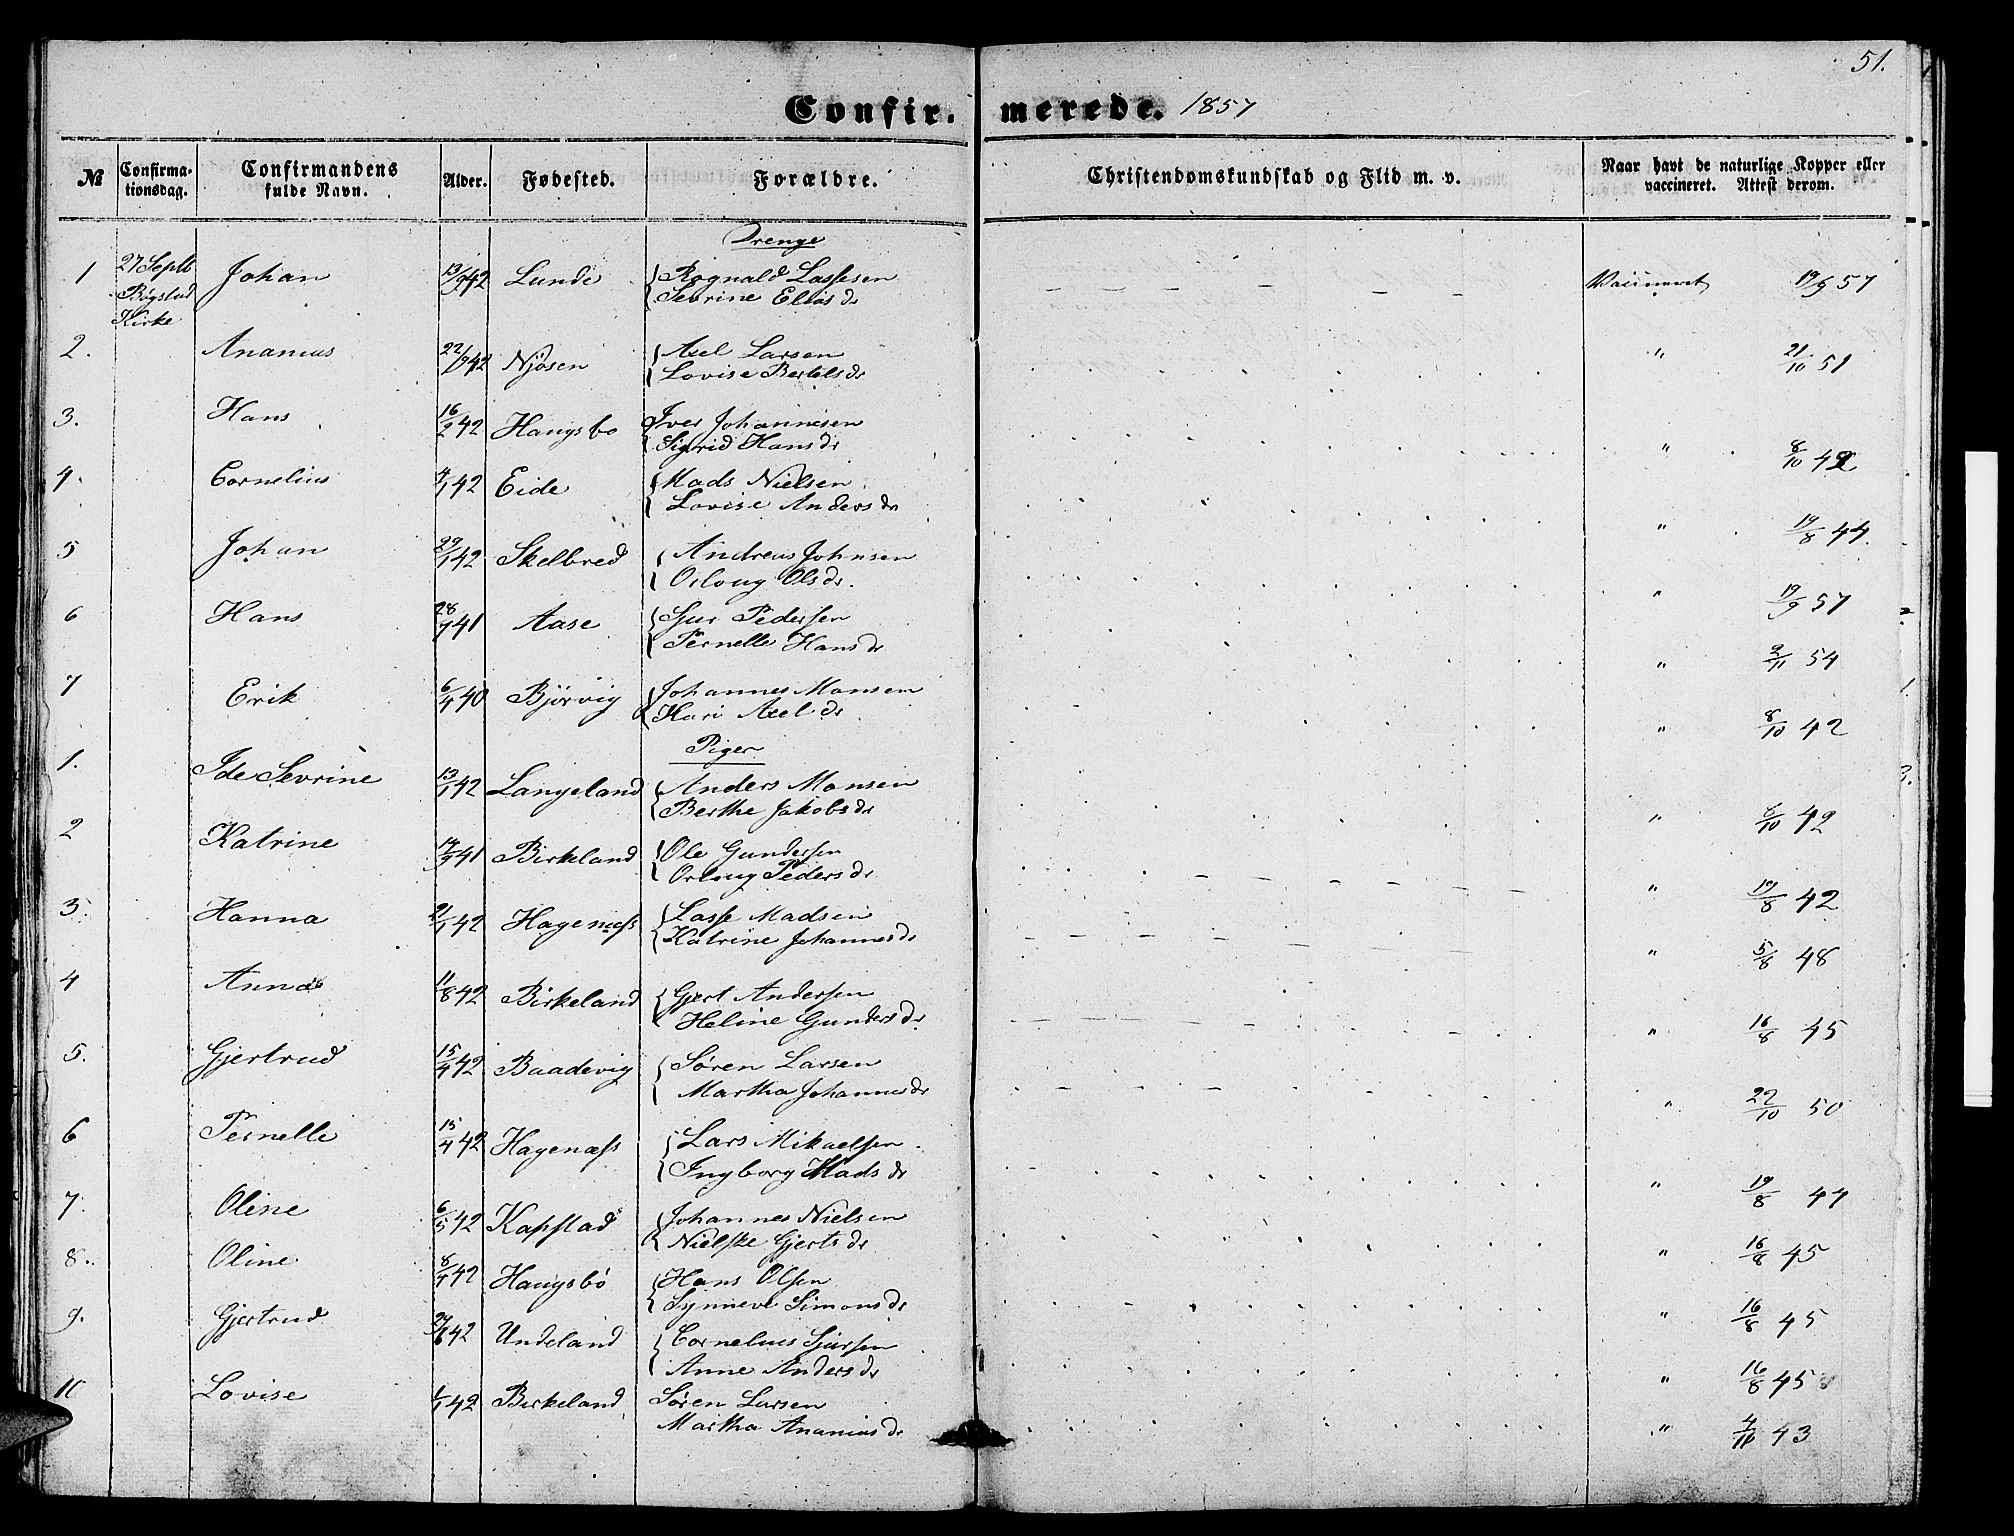 51.
Confir- merede. 1857
№ Confirma- Confirmandens Alder. Fødested. Forældre. Christendomskundskab og Flid m. v. Naar havt de naturlige Kopper eller
tionsdag. fulde Navn. vaccineret. Attest derom.
Drenge
1 27 Septb Johan 42 Lunde Rognald Lassesen Vaccineret 19/9 57
Kirke Sevrine Eliasdr
2. Ananias 42 Njøsen Axel Larsen " 21/10 51
Lovise Bertelsdr
3. Hans 16/2 42 Haugsbo Iver Johannesen " 8/10 42
Sigrid Hansdr
4. Cornelius 4/1 42 Eide Mads Nielsen " 19/8 44.
Lovise Andersdr
5 Johan 29/1 42 Skelbred Andreas Johnsen " 19/9 57
Orloug Olsdr.
6 Hans 41 Aase Sjur Pedersen " 9/11 54
Pernelle Hansdr
7 Erik 6/4 40 Bjørvig Johannes Monsen " 8/10 42
Kari Axeldr
Piger
1. Ide Sevrine 13/1 42 Langeland Anders Monsen " 8/10 42
Berthe Jakobsdr
2 Katrine 14/9 41 Birkeland Ole Gundersen " 19/8 42
Orloug Pedersdr
3. Hanna 21/1 42 Hagenæss Lasse Madsen " 5/8 48
Katrine Johannesdr
4 Anna 11/8 42 Birkeland Gjert Andersen " 16/8 45
Heline Gundersdr
5. Gjertrud 15/4 42 Baadevig Søren Larsen " 22/10 50
Martha Johannesdr
6 Pernelle 15/4 42 Hagenæss Lars Mikaelsen " 19/8 44
Ingborg Madsdr
7. Oline 6/5 42 Kapstad Johannes Nielsen " 16/8 45
Nielske Gjertsdr
8. Oline 8/4 42 Haugsbø Hans Olsen " 16/8 45
Synneve Simonsdr
9. Gjertrud 42 Undeland Cornelius Sjursen " 16/8 45
Anne Andersdr
10 Lovise 1/1 42 Birkeland Søren Larsen " 4/10 43
Martha Ananiasdr